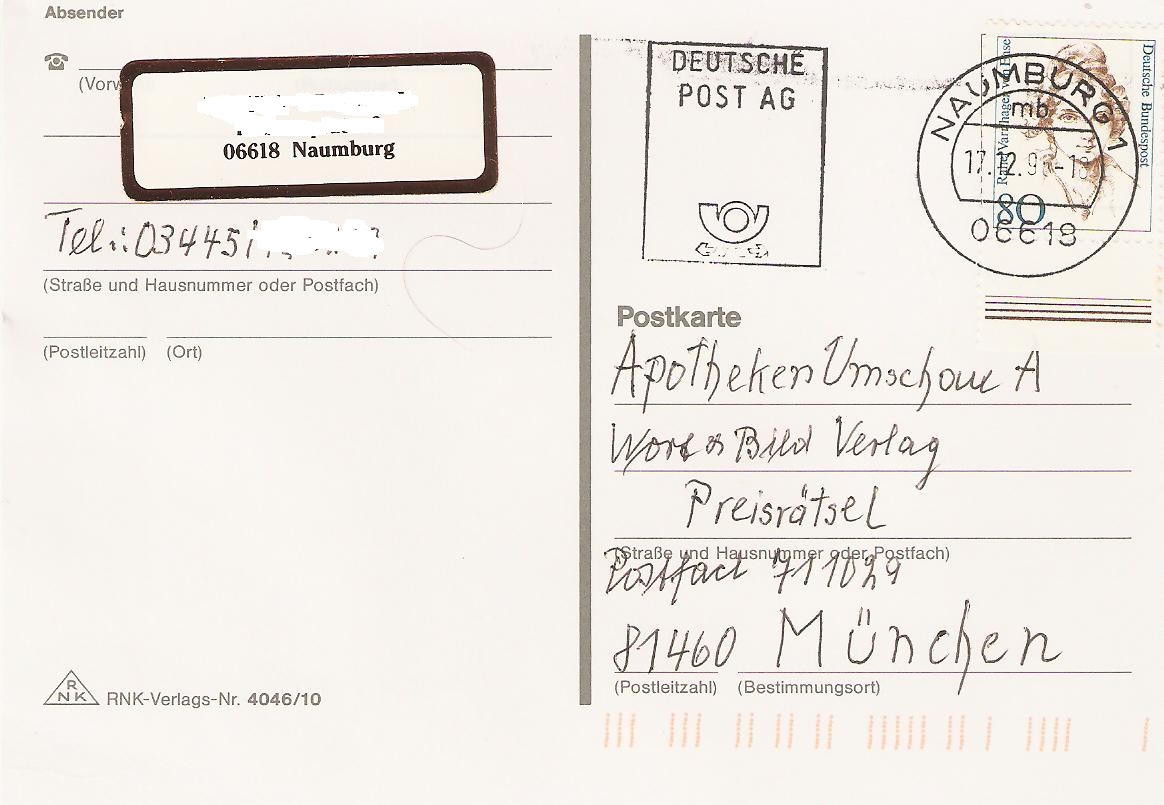 Absender
(Vorw
06618 Naumburg
Tel.: 03445
(Straße und Hausnummer oder Postfach)
(Postleitzahl) (Ort)
RNK
RNK-Verlags-Nr. 4046/10
DEUTSCHE
POST AG
NAUMBURG 1
mb
17.12.9 -18
06618
Deutsche Bundespost
Rahel Varnhagen von Ense
80
Postkarte
Apotheken Umschau A
Wort & Bild Verlag
Preisrätsel
(Straße und Hausnummer oder Postfach)
Postfach 711029
81460 München
(Postleitzahl) (Bestimmungsort)